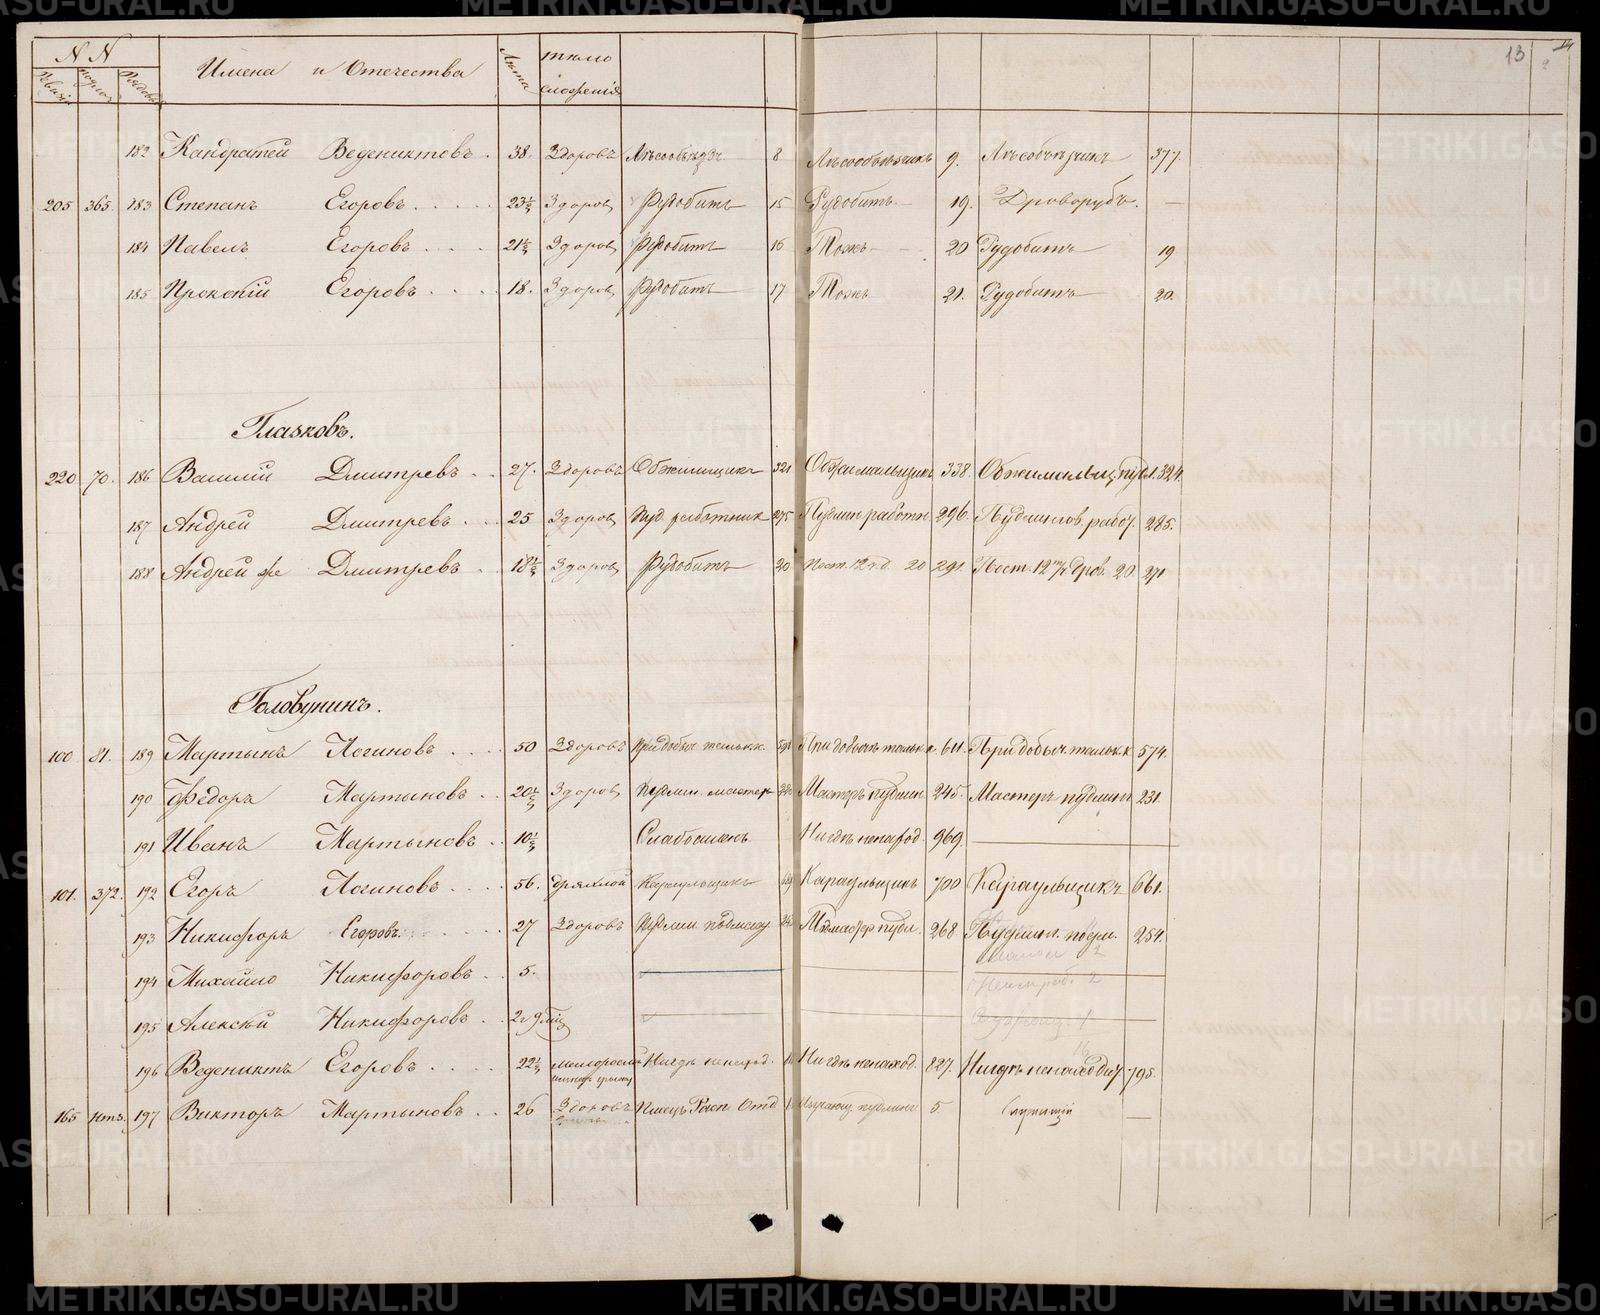 N N Имена и Отечества Лета тело
сложенiя 13
182 Кандратей Ведениктовъ . 38. Здоровъ Лѣсообъѣздч. 8 Лѣсообъѣзчикъ 9. Лѣсобъѣзчикъ 377.
205 365. 183 Степанъ Егоровъ . . . . 23½ Здоров Рудобитъ 15 Рудобитъ 19. Дроворубъ. —
184 Павелъ Егоровъ . . . 21½ Здоров Рудобитъ 16 Тожъ 20 Рудобитъ 19
185 Прокопiй Егоровъ . . . . 18. Здоров Рудобитъ 17 Тожъ 21. Рудобитъ 20.
Глазковъ.
220 70. 186 Василiй Дмитревъ . . 27. Здоровъ Обжимщикъ 321 Обжимальщикъ 338. Обжимальщ. пудл. 324.
187 Андрей Дмитревъ . . . 25 Здоров Пуд. работник 275 Пудлин работн 296. Пудлингов. рабоч. 285.
188 Андрей же Дмитревъ . 18½ Здоров Рудобитъ 20 20 291 Пост. 20 271
Головунинъ.
100 81. 189 Мартынъ Логиновъ . . . . 50 Здоровъ При добыч. тальк. к. При добычѣ тальк. к. 611. При добыч. тальк. к 574.
190 Ѳедоръ Мартыновъ . . 20½ Здоров Пудлин. мастер Мастеръ пудлин 245. Мастеръ пудлинг 231.
191 Иванъ Мартыновъ . . 10½ Слабосиленъ. Нигдѣ ненаход. 969. —
101. 372. 192 Егоръ Логиновъ . . . . 56. дряхлой Караульщикъ Караульщикъ 700 Караульщикъ 661.
193 Никифоръ Егоровъ . . . . . 27 Здоровъ Пудлин. подмаст. Подмастер пудл. 268 Пудлин. подм. 254.
194 Михайло Никифоровъ . . 5. —
195 Алексѣй Никифоровъ . . 2 г 9 мiс —
196 Ведениктъ Егоровъ . . . . 22½ малорослой Нигдѣ ненаход. Нигдѣ ненаход. 827. Нигдѣ ненаходит 795.
165 нѣтъ. 197 Викторъ Мартыновъ . . 26 Здоровъ Писецъ Расп. Отд пудлинг. 5 —